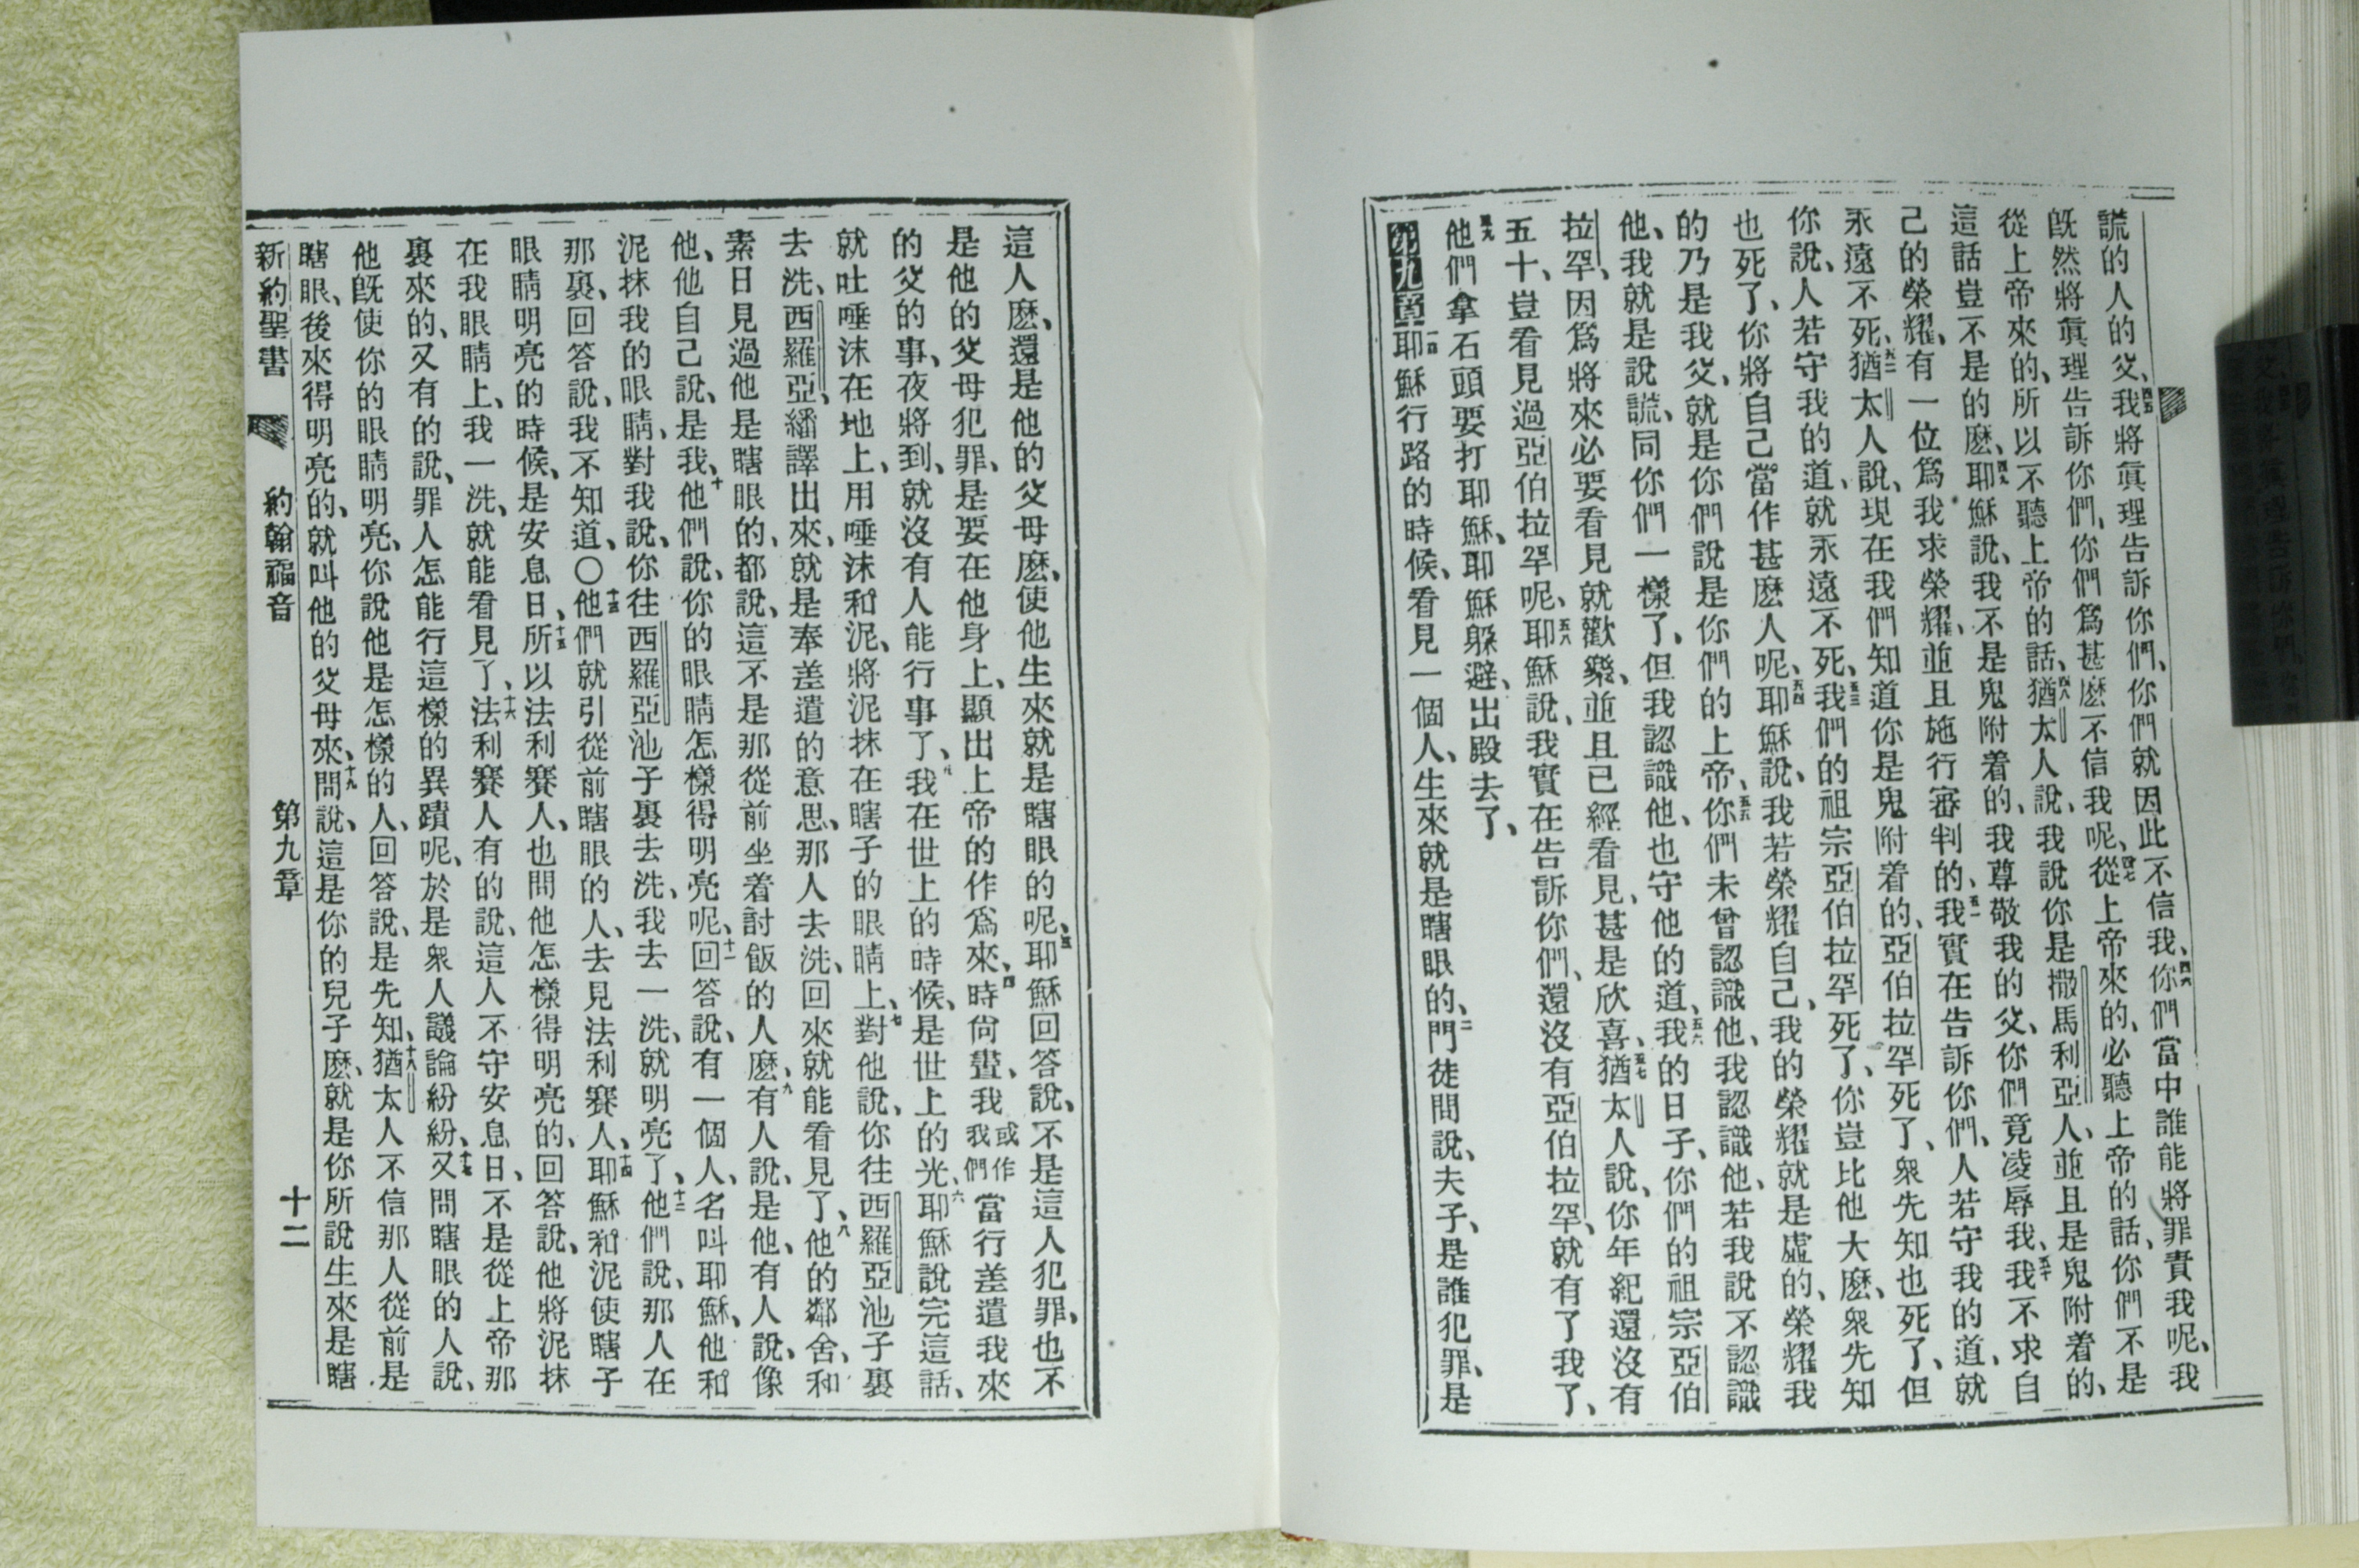 謊的人的父、四五我將眞理告訴你們、你們就因此不信我、四六你們當中誰能將罪責我呢、我
旣然將眞理告訴你們、你們爲甚麽不信我呢、四七從上帝來的、必聽上帝的話、你們不是
從上帝來的、所以不聽上帝的話、四八猶太人說、我說你是撒馬利亞人、並且是鬼附着的、
這話豈不是的麽、四九耶穌說、我不是鬼附着的、我尊敬我的父、你們竟凌辱我、五十我不求自
己的榮耀、有一位爲我求榮耀、並且施行審判的、五一我實在告訴你們、人若守我的道、就
永遠不死、五二猶太人說、現在我們知道你是鬼附着的、亞伯拉罕死了、衆先知也死了、但
你說、人若守我的道、就永遠不死、五三我們的祖宗亞伯拉罕死了、你豈比他大麽、衆先知
也死了、你將自己當作甚麽人呢、五四耶穌說、我若榮耀自己、我的榮耀就是虛的、榮耀我
的乃是我父、就是你們說是你們的上帝、五五你們未曾認識他、我認識他、若我說不認識
他、我就是說謊、同你們一樣了、但我認識他、也守他的道、五六我的日子、你們的祖宗亞伯
拉罕、因爲將來必要看見就歡樂、並且已經看見、甚是欣喜、五七猶太人說、你年紀還沒有
五十、豈看見過亞伯拉罕呢、五八耶穌說、我實在告訴你們、還沒有亞伯拉罕、就有了我了、
五九他們拿石頭要打耶穌、耶穌躱避、出殿去了、
第九章一耶穌行路的時候、看見一個人、生來就是瞎眼的、二門徒問說、夫子、是誰犯罪、是
這人麽、還是他的父母麽、使他生來就是瞎眼的呢、三耶穌回答說、不是這人犯罪、也不
是他的父母犯罪、是要在他身上、顯出上帝的作爲來、四時尙晝、我或作我們當行差遣我來
的父的事、夜將到、就沒有人能行事了、五我在世上的時候、是世上的光、六耶穌說完這話、
就吐唾沫在地上、用唾沫和泥、將泥抹在瞎子的眼睛上、七對他說、你往西羅亞池子裏
去洗、西羅亞繙譯出來、就是奉差遣的意思、那人去洗、回來就能看見了、八他的鄰舍、和
素日見過他是瞎眼的、都說、這不是那從前坐着討飯的人麽、九有人說、是他、有人說、像
他、他自己說、是我、十他們說、你的眼睛怎樣得明亮呢、十一回答說、有一個人、名叫耶穌、他和
泥抹我的眼睛、對我說、你往西羅亞池子裏去洗、我去一洗、就明亮了、十二他們說、那人在
那裏、回答說、我不知道、〇十三他們就引從前瞎眼的人、去見法利賽人、十四耶穌和泥使瞎子
眼睛明亮的時候、是安息日、十五所以法利賽人、也問他怎樣得明亮的、回答說、他將泥抹
在我眼睛上、我一洗、就能看見了、十六法利賽人有的說、這人不守安息日、不是從上帝那
裏來的、又有的說、罪人怎能行這樣的異蹟呢、於是衆人議論紛紛、十七又問瞎眼的人說、
他旣使你的眼睛明亮、你說他是怎樣的人、回答說、是先知、十八猶太人不信那人從前是
瞎眼、後來得明亮的、就叫他的父母來、十九問說、這是你的兒子麽、就是你所說生來是瞎
新約聖書　約翰福音　第九章　十二